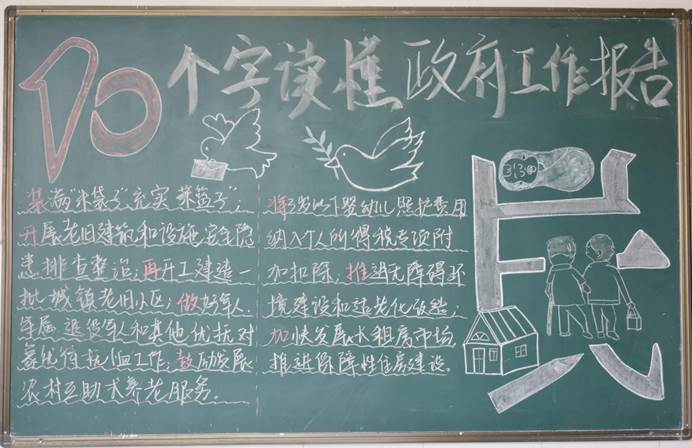 10个字读懂政府工作报告
装满“米袋子”,充实“菜篮子”;
开展老旧建筑和设施安全隐
患排查整治;再开工建造一
批城镇老旧小区;做好军人
军属、退役军人和其他优抚对
象优待抚恤工作;鼓励发展
农村互助式养老服务。
将3岁以下婴幼儿照护费用
纳入个人所得税专项附
加扣除;推进无障碍环
境建设和适老化改造;
加快发展长租房市场,
推进保障性住房建设。
民